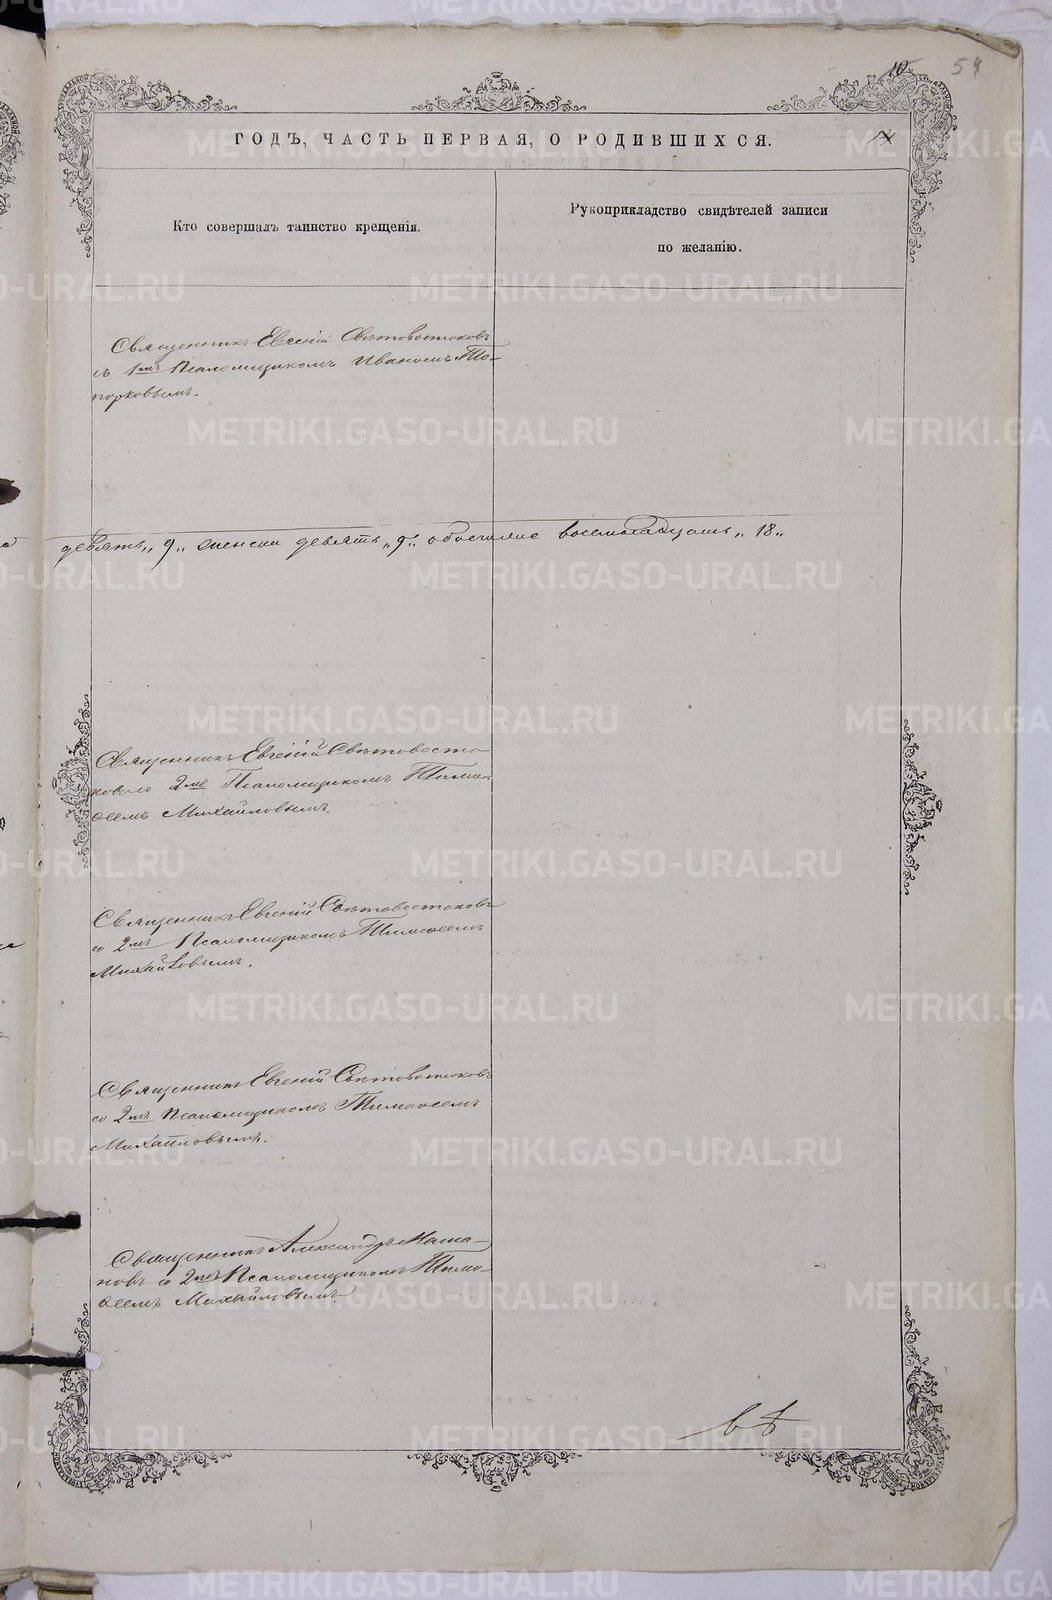 10 54
ГОДЪ, ЧАСТЬ ПЕРВАЯ, О РОДИВШИХСЯ.
Кто совершалъ таинство крещенія.
Рукоприкладство свидѣтелей записи
по желанію.
Священникъ Евгеній Свѣтовостоковъ
съ 1мъ Псаломщикомъ Иваномъ То-
порковымъ.
девять „9„ женска девять „9„ обоегоже восемнадцать „18„
Священникъ Евгеній Свѣтовосто-
ковъ со 2мъ Псаломщикомъ Тимо-
ѳеемъ Михайловымъ.
Священникъ Евгеній Свѣтовостоковъ
со 2мъ Псаломщикомъ Тимоѳеемъ
Михайловымъ.
Священникъ Евгеній Свѣтовостоковъ
со 2мъ Псаломщикомъ Тимоѳеемъ
Михайловымъ.
Священникъ Александръ Маша-
новъ со 2мъ Псаломщикомъ Тимо-
ѳеемъ Михайловымъ.
METRIKI.GASO-URAL.RU